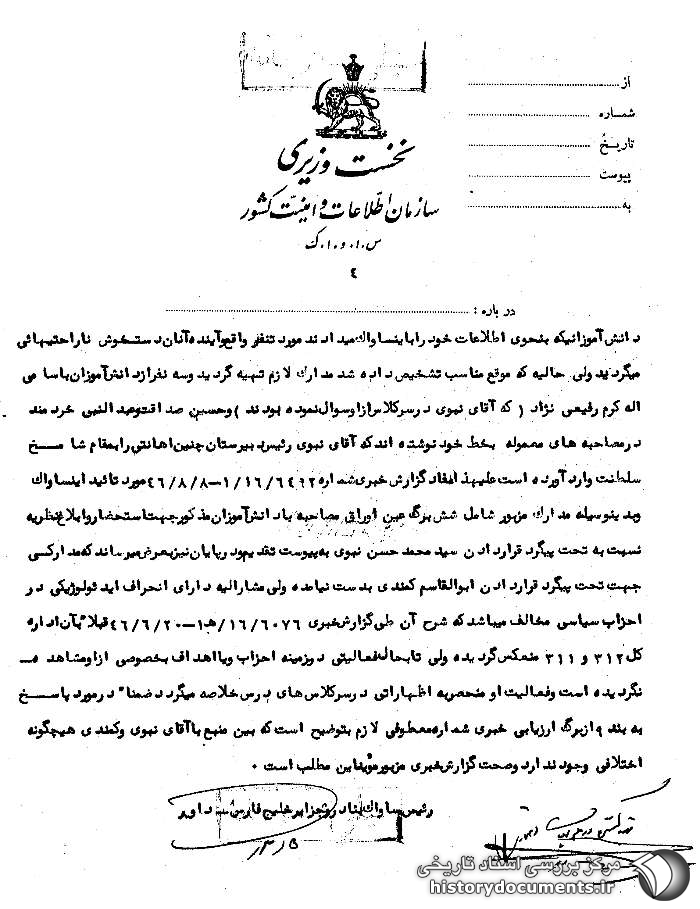 از
شماره
تاریخ
پیوست
به
نخست وزیری
سازمان اطلاعات و امنیت کشور
س.ا.و.ا.ک
٤
در باره :
دانش آموزانیکه بنحوی اطلاعات خود را باینساواک میدادند مورد تنفر واقع و آینده آنان دستخوش ناراحتیهائی
میگردید ولی حالیه که موقع مناسب تشخیص داده شد مدارک لازم تهیه گردید و سه نفر از دانش آموزان باسامی
اله کرم رفیعی نژاد ( که آقای نبوی در سر کلاس از او سوال نموده بودند ) و حسین صداقت و عبدالنبی خردمند
در مصاحبه های معموله بخط خود نوشته اند که آقای نبوی رئیس دبیرستان چنین اهانتی را بمقام شامخ
سلطنت وارد آورده است علیهذا مفاد گزارش خبری شماره ۱۶/۶۴۹۲/ه‍۱-۴۶/۸/۸ مورد تائید اینساواک
وبدینوسیله مدارک مزبور شامل شش برگ عین اوراق مصاحبه با دانش آموزان مذکور جهت استحضار و ابلاغ نظریه
نسبت به تحت پیگرد قرار دادن سید محمد حسن نبوی به پیوست تقدیم و در پایان نیز بعرض میرساند که مدارکی
جهت تحت پیگرد قرار دادن ابوالقاسم کمندی بدست نیامده ولی مشارالیه دارای انحراف ایدئولوژیکی در
احزاب سیاسی مخالف میباشد که شرح آن طی گزارش خبری ۱۶/۶۰۷۶/ه‍۱-۴۶/۶/۲۰ قبلا" بآن اداره
کل ۳۱۲ و ۳۱۱ منعکس گردیده ولی تابحال فعالیتی در زمینه احزاب و یا اهداف بخصوصی از او مشاهده
نگردیده است و فعالیت او منحصر به اظهاراتی در سر کلاس های درس خلاصه میگردد ضمنا" در مورد پاسخ
به بند برگ ارزیابی خبری شماره معطوفی لازم بتوضیح است که بین منبع با آقای نبوی و کمندی هیچگونه
اختلافی وجود ندارد و صحت گزارش خبری مزبور موید این مطلب است .
رئیس ساواک بنادر و جزایر خلیج فارس - داور
مرکز بررسی اسناد تاریخی
historydocuments.ir